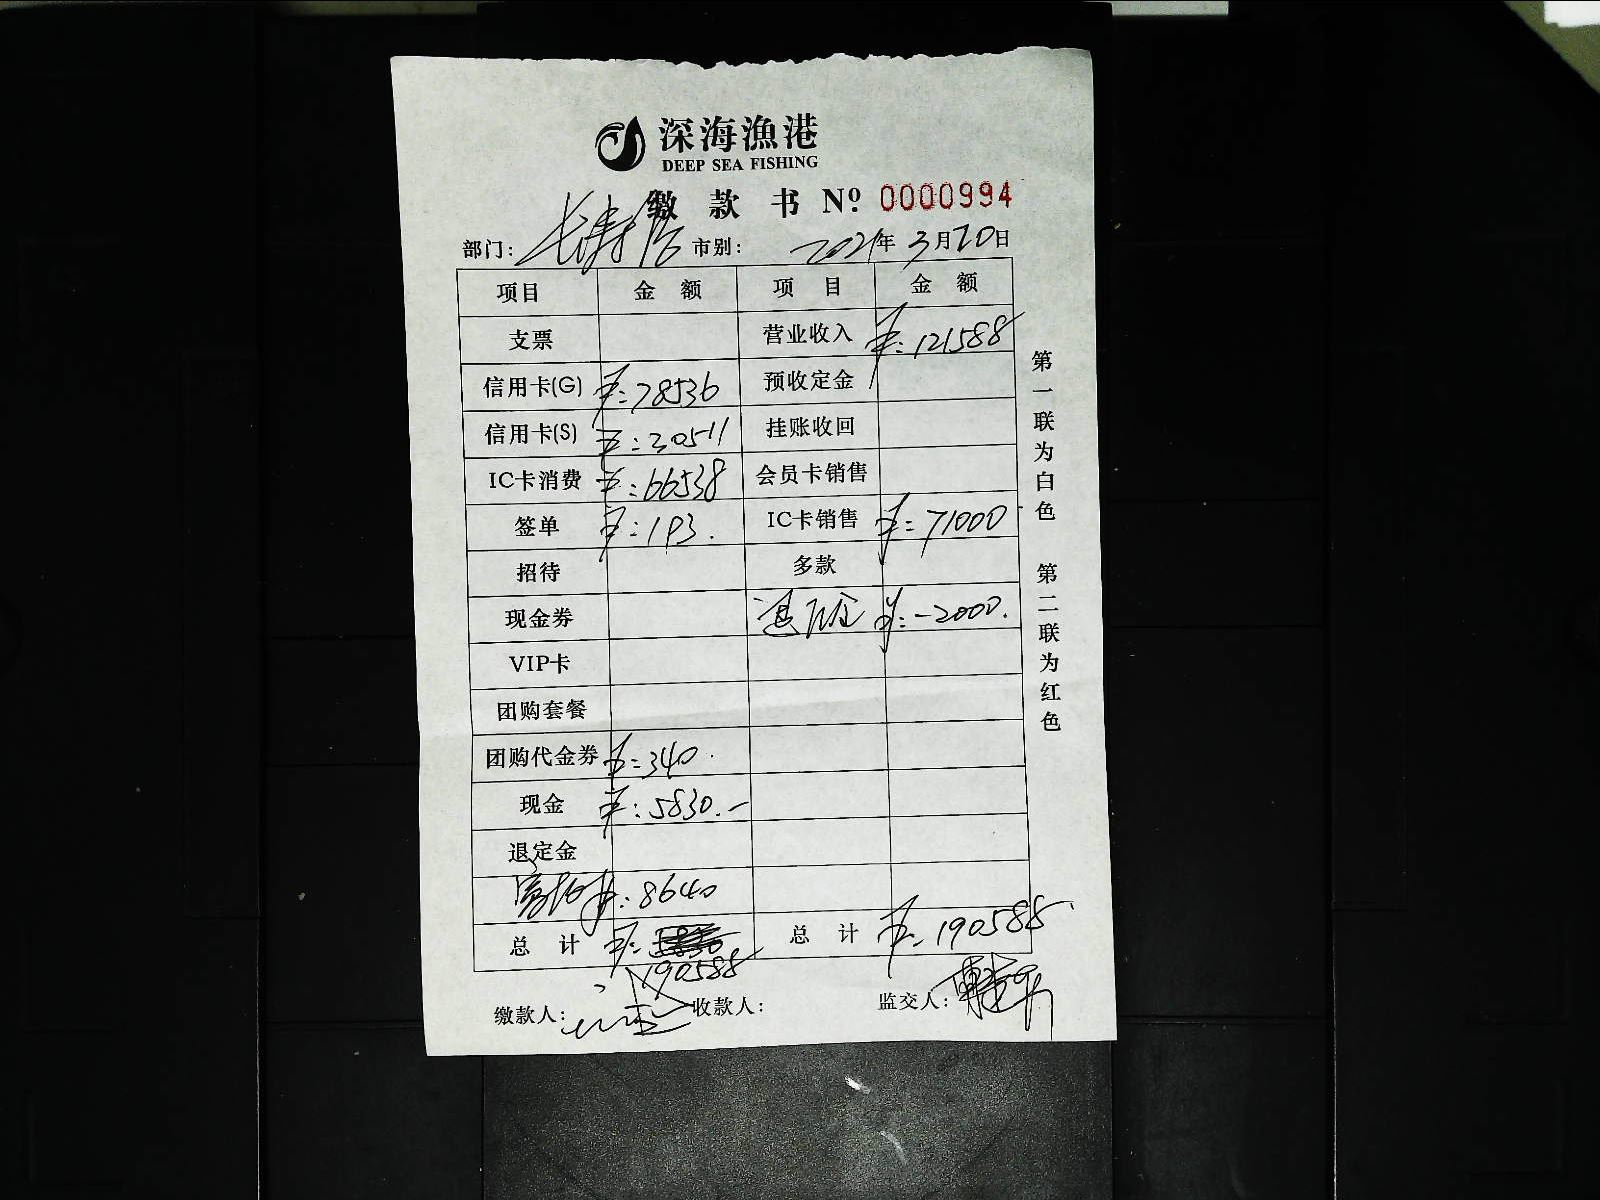 深海漁港
DEEP SEA FISHING
缴款书 Nº 0000994
部门: 长寿店 市别: 2021年3月20日
项目 金额 项目 金额
支票 营业收入 ¥:121588
信用卡(G) ¥:78536 预收定金
信用卡(S) ¥:30511 挂账收回
IC卡消费 ¥:66538 会员卡销售
签单 ¥:193. IC卡销售 ¥:71000
招待 多款
现金券 退订金 ¥:-2000.
VIP卡
团购套餐
团购代金券 ¥:340.
现金 ¥:5830.-
退定金
¥:8640
总计 ¥: 190588 总计 ¥:190588.
缴款人: 收款人: 监交人:
第一联为白色 第二联为红色